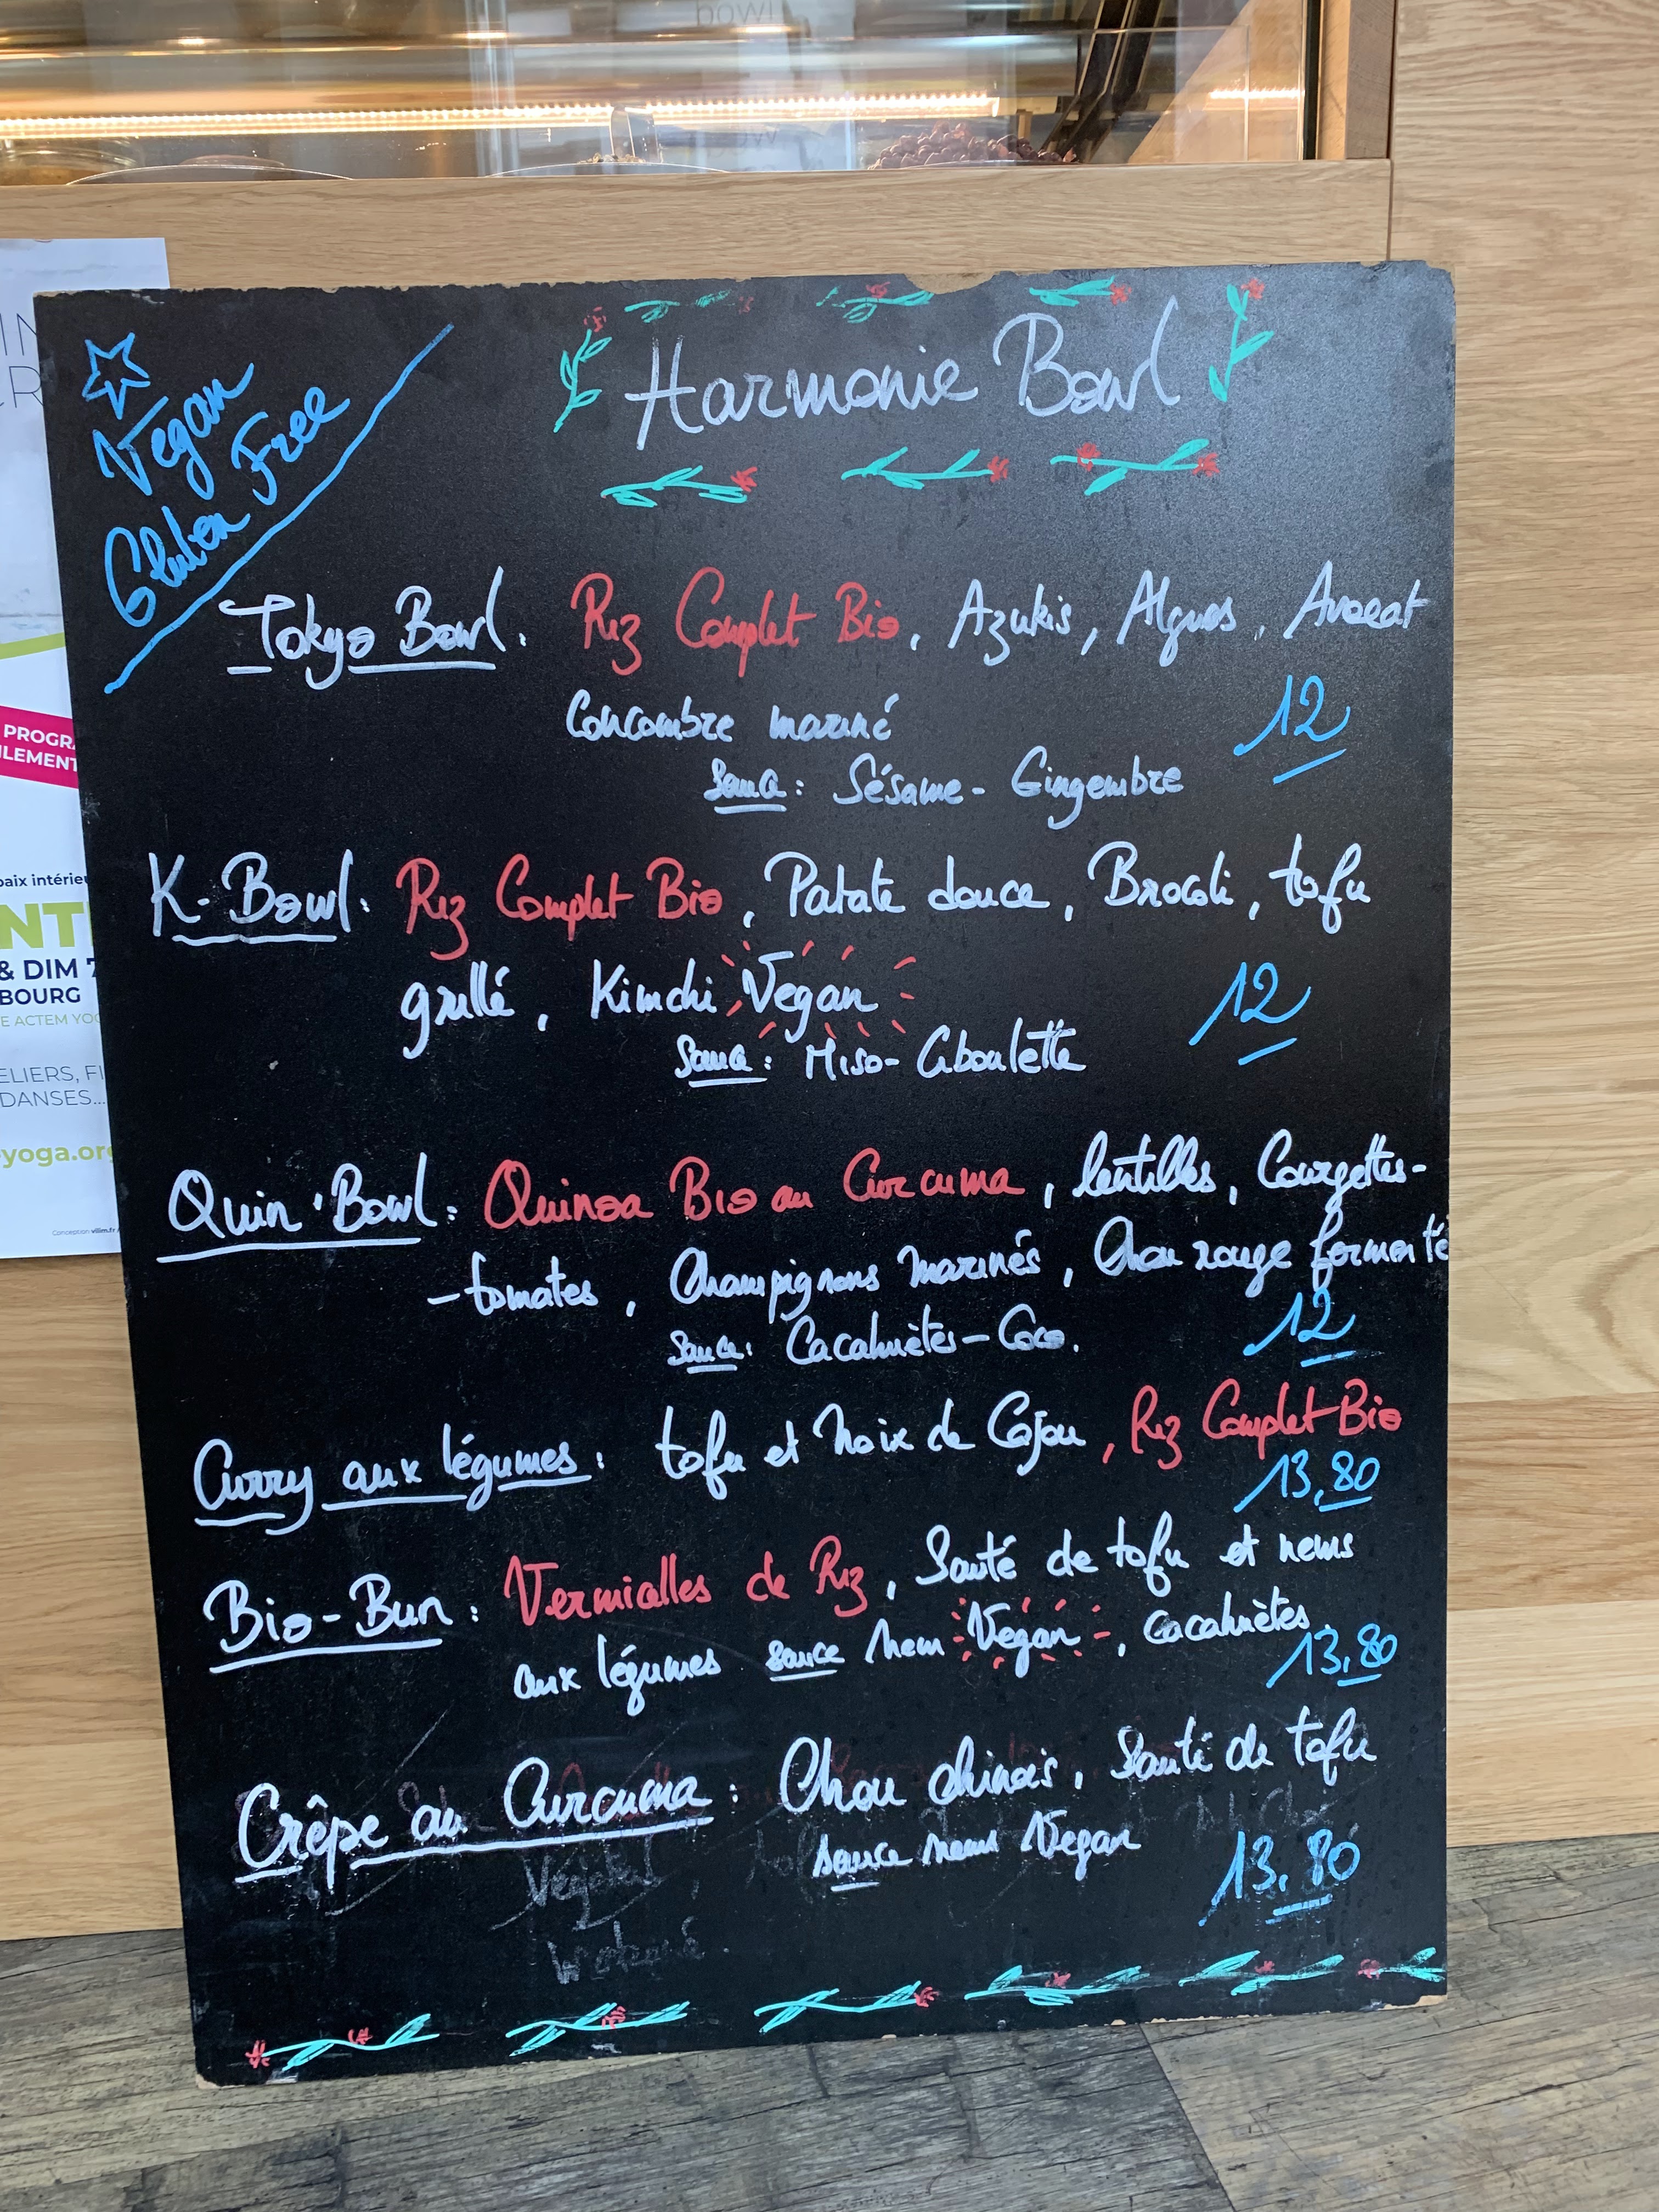 bowl
Vegan
Gluten Free
Harmonie Bowl
Tokyo Bowl. Riz Complet Bio, Azukis, Algues, Avocat
Concombre mariné
12
Sauce: Sésame - Gingembre
K-Bowl. Riz Complet Bio, Patate douce, Brocoli, tofu
grillé, Kimchi Vegan
12
Sauce: Miso - Ciboulette
Quin'Bowl: Quinoa Bio au Curcuma, lentilles, Courgettes-
-tomates, Champignons marinés, Chou rouge fermenté
12
Sauce: Cacahuètes - Coco.
Curry aux légumes: tofu et Noix de Cajou, Riz Complet Bio
13,80
Bio-Bun: Vermicelles de Riz, Sauté de tofu et nems
aux légumes sauce nem Vegan, cacahuètes
13,80
Crêpe au Curcuma: Chou chinois, Sauté de tofu
sauce nems Vegan
13,80
PROGR
LEMENT
paix intérieu
NT
& DIM 7
BOURG
E ACTEM YO
ELIERS, FI
DANSES...
yoga.org
Conception vilim.fr